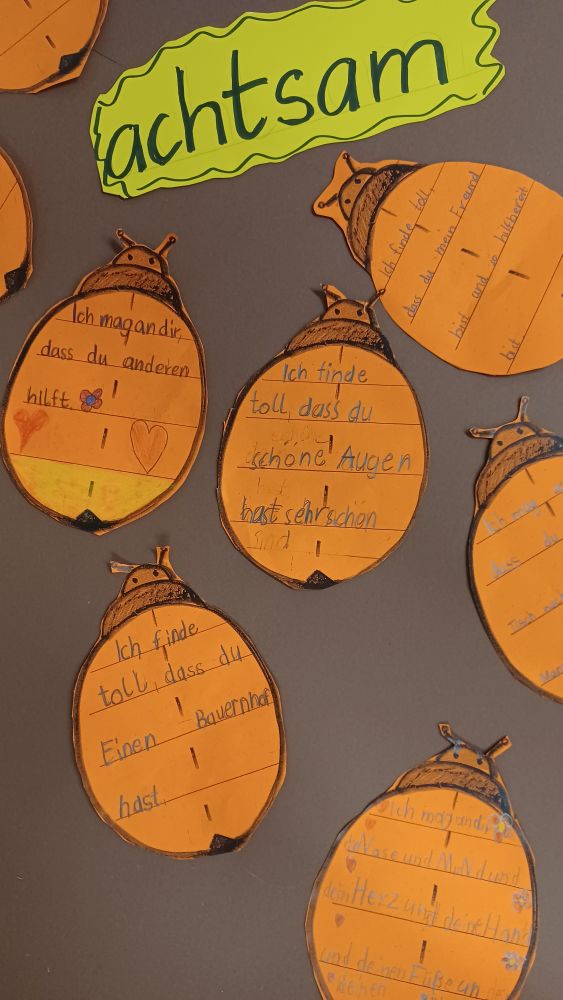 achtsam
Ich finde toll,
dass du mein Freund
bist und so hilfbereit
bist
Ich mag an dir,
dass du anderen
hilft.
Ich finde
toll, dass du
schöne Augen
hast sehr schön
sind
Ich mag
dass du
Tisch
Ich finde
toll, dass du
Einen Bauernhof
hast.
Ich mag an dir
Nase und MuNd und
dein Herz und deine Hand
und deinen Füße an